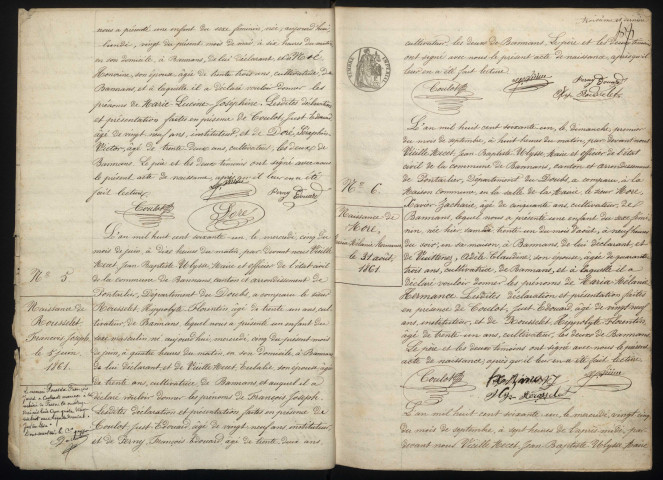 nous a présenté une enfant du sexe féminin, née, aujourd'hui
lundi, vingt du présent mois de mai, à six heures du matin
en son domicile, à Bannans, de lui déclarant et de
son épouse, âgée de trente ans, cultivatrice, de
Bannans, et à laquelle il a déclaré vouloir donner les
prénoms de Marie Lucine Joséphine. Lesdites déclaration
et présentation faites en présence de Coulot Just Edouard
âgé de vingt neuf ans, instituteur, et de Dore, Séraphin
Victor, âgé de trente deux ans, cultivateur, les deux de
Bannans. Le père et les deux témoins ont signé avec nous
le présent acte de naissance, après qu'il leur en a été
fait lecture.
Coulot Dore
L'an mil huit cent soixante un, le mercredi, cinq du
mois de juin, à dix heures du matin, par devant nous Vieille
Mecet, Jean Baptiste Ulysse, Maire et officier de l'état civil
de la commune de Bannans, canton et arrondissement de
Pontarlier, Département du Doubs, a comparu le sieur
Rousselet, Hyppolyte Florentin, âgé de trente ans, cul-
tivateur de Bannans, lequel nous a présenté un enfant du
sexe masculin, né, aujourd'hui, mercredi, cinq du présent mois
de juin, à quatre heures du matin, en son domicile, à Bannans
de lui déclarant et de Vieille Mecet, son épouse, âgée
de trente ans, cultivatrice de Bannans et auquel il a
déclaré vouloir donner les prénoms de François Joseph.
Lesdites déclaration et présentation faites en présence de
Coulot Just Edouard, âgé de vingt-neuf ans, instituteur,
et de Perny, François Edouard, âgé de trente deux ans,
No 5
Naissance de
Rousselet
François Joseph
le 5 juin
1861
cultivateur, les deux de Bannans. Le père et les deux témoins
ont signé avec nous le présent acte de naissance, après qu'il
leur en a été fait lecture.
Coulot Perny Edouard
L'an mil huit cent soixante un, le dimanche, premier
du mois de septembre, à huit heures du matin, par devant nous
Vieille Mecet, Jean Baptiste Ulysse, Maire et officier de l'état
civil de la commune de Bannans, canton et arrondissement
de Pontarlier, Département du Doubs, a comparu, à la
Maison commune, en la salle de la Mairie, le sieur More
Xavier Zacharie, âgé de cinquante ans, cultivateur, de
Bannans, lequel nous a présenté une enfant du sexe fémi-
nin, née hier, samedi trente un du mois d'août, à neuf heures
du soir, en sa maison, à Bannans, de lui déclarant, et
de Adèle Claudine, son épouse, âgée de quarante
trois ans, cultivatrice, de Bannans, et à laquelle il a
déclaré vouloir donner les prénoms de Maria Mélanie
Hermance. Lesdites déclaration et présentation faites
en présence de Coulot, Just Edouard, âgé de vingt neuf
ans, instituteur, et de Rousselet Hyppolyte Florentin,
âgé de trente ans, cultivateur, les deux de Bannans.
Le père et les deux témoins ont signé avec nous le présent
acte de naissance, après qu'il leur en a été fait lecture.
Coulot
Hte Rousselet
L'an mil huit cent soixante un, le mercredi, vingt cinq
du mois de septembre, à sept heures de l'après-midi, par
devant nous Vieille Mecet, Jean Baptiste Ulysse, Maire
No 6.
Naissance de
More,
Maria Mélanie Hermance
le 31 août
1861